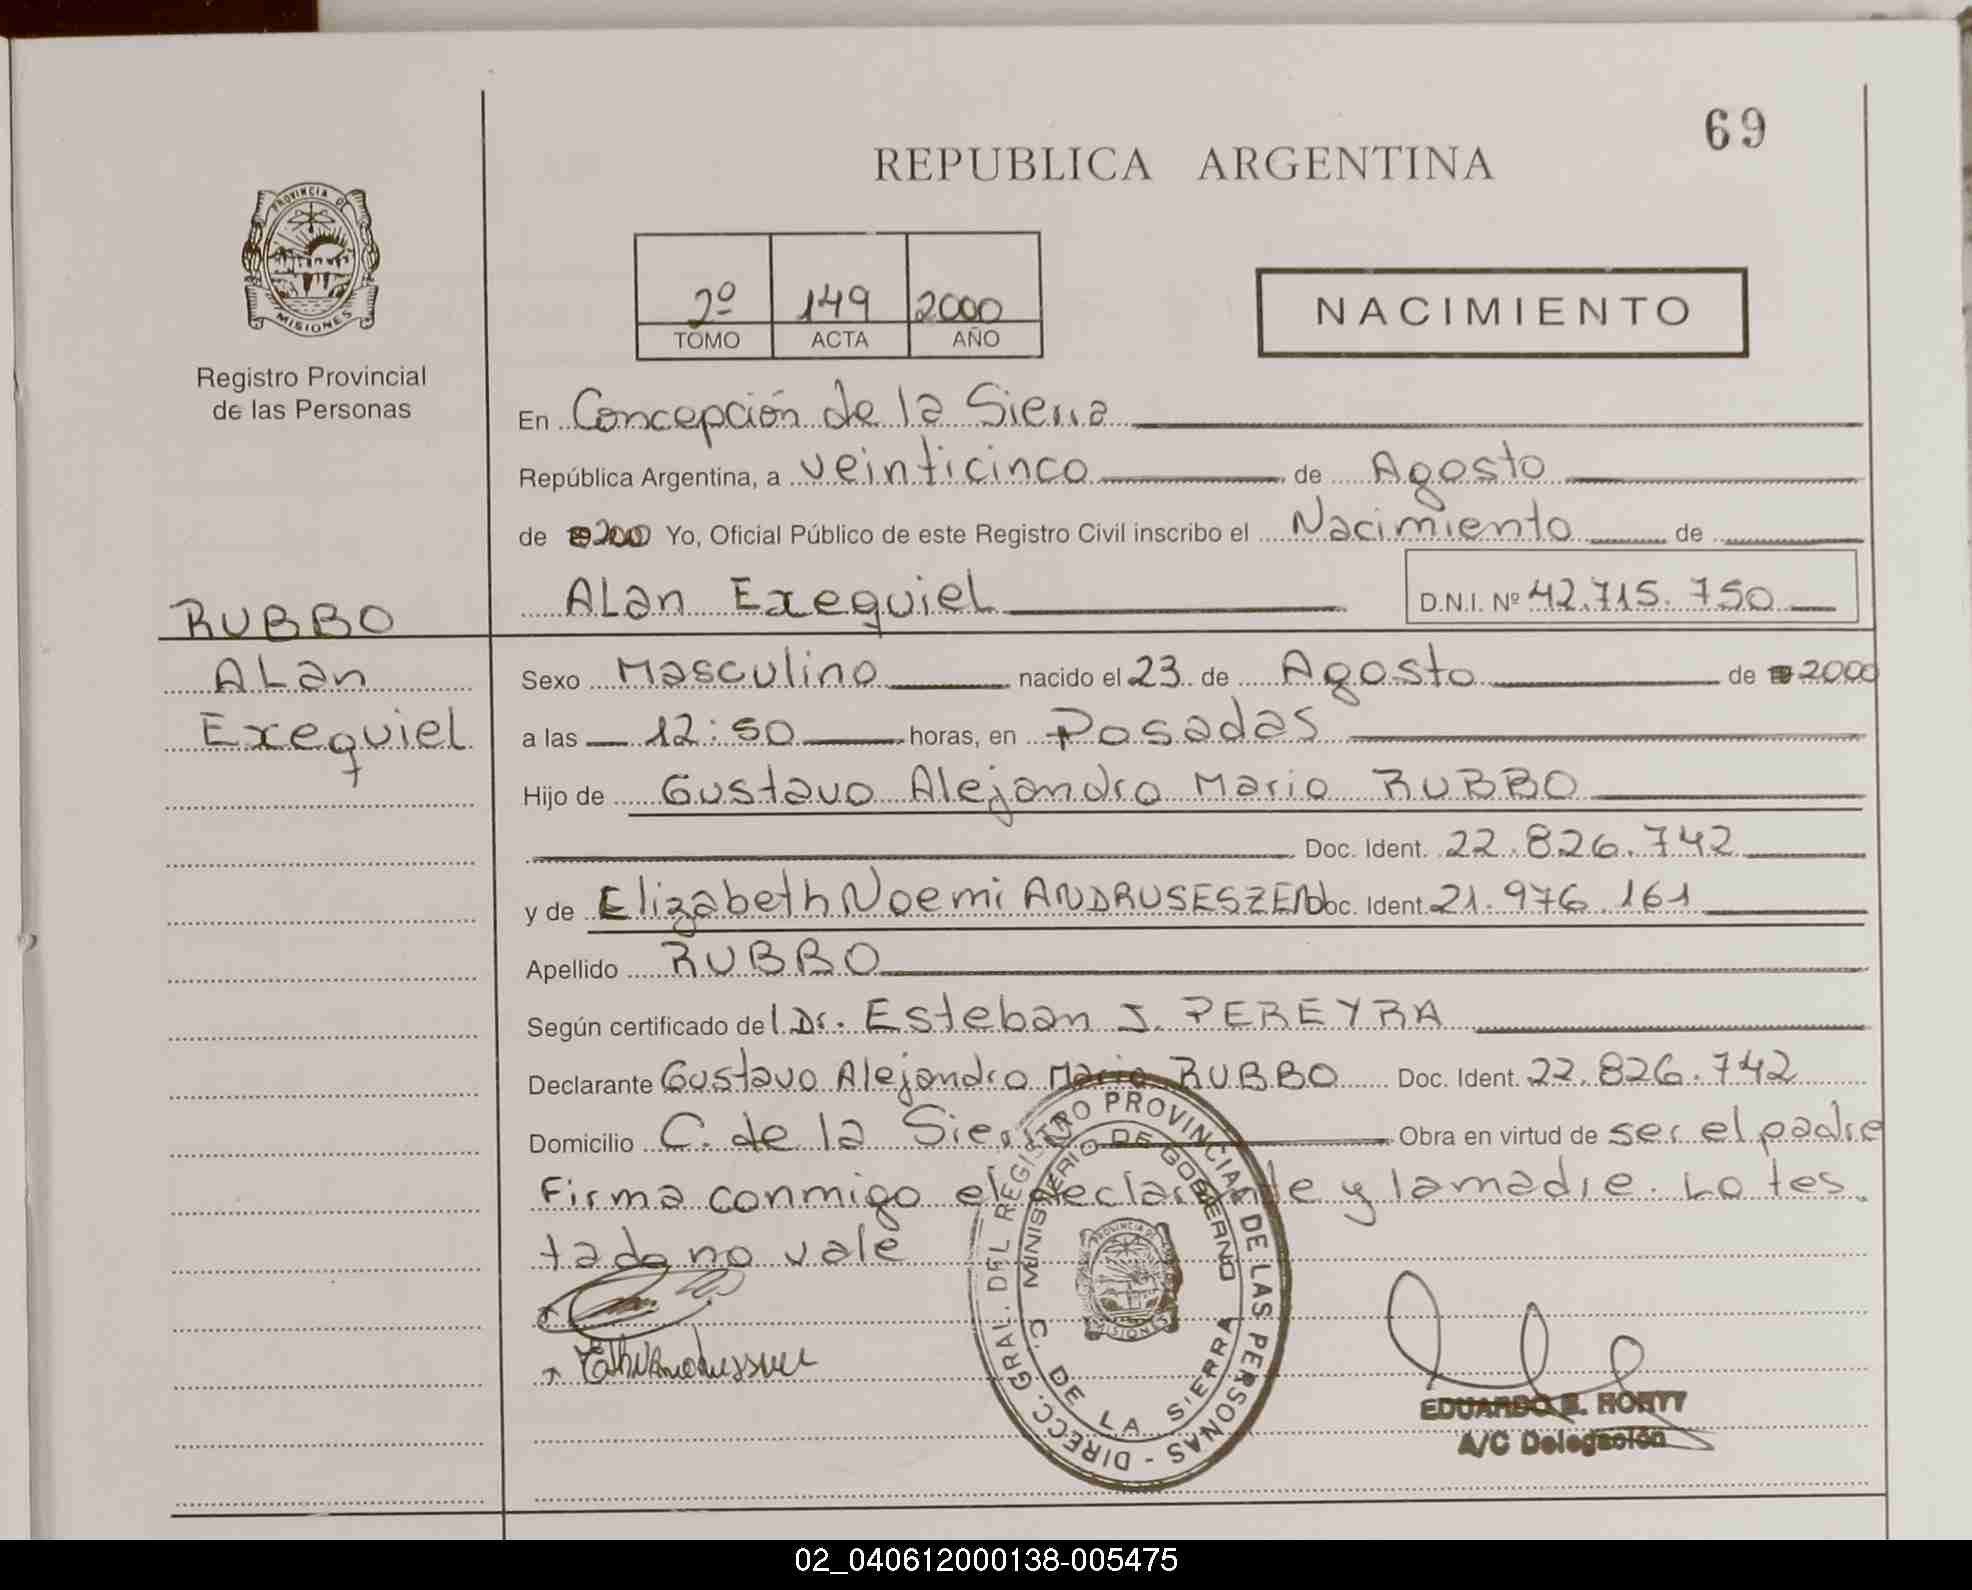 69
REPUBLICA ARGENTINA
PROVINCIA DE
MISIONES
Registro Provincial
de las Personas
2º 149 2000
TOMO ACTA AÑO
NACIMIENTO
En Concepción de la Sierra
República Argentina, a veinticinco de Agosto
de 2000 Yo, Oficial Público de este Registro Civil inscribo el Nacimiento de
Alan Exequiel D.N.I. Nº 42.715.750
RUBBO
Alan
Exequiel
Sexo Masculino nacido el 23 de Agosto de 2000
a las 12:50 horas, en Posadas
Hijo de Gustavo Alejandro Mario RUBBO
Doc. Ident. 22.826.742
y de Elizabeth Noemi ANDRUSESZEN Doc. Ident. 21.976.161
Apellido RUBBO
Según certificado del Dr. Esteban J. PEREYRA
Declarante Gustavo Alejandro Mario RUBBO Doc. Ident. 22.826.742
Domicilio C. de la Sierra Obra en virtud de ser el padre
Firma conmigo el declarante y la madre. Lo tes
tado no vale
DIRECC. GRAL. DEL REGISTRO PROVINCIAL DE LAS PERSONAS -
MINISTERIO DE GOBIERNO
C. DE LA SIERRA
PROVINCIA DE
MISIONES
EDUARDO
A/C Delegación
02_040612000138-005475